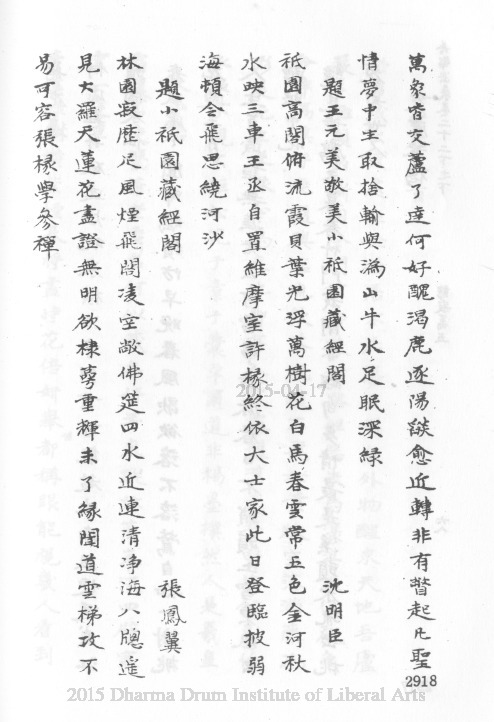 萬象皆交蘆了達何好醜渴鹿逐陽燄愈近轉非有瞥起凡聖
情夢中生取捨輸與溈山牛水足眠深綠
題王元美敬美小祇園藏經閣 沈明臣
祇園高閣俯流霞貝葉光浮萬樹花白馬春雲常五色金河秋
水映三車王丞自置維摩室許掾終依大士家此日登臨披弱
海頓令飛思繞河沙
題小祇園藏經閣 張鳳翼
林園寂歷足風煙飛閣凌空敞佛筵四水近連清淨海八牕遙
見大羅天蓮花盡證無明欲棣萼重輝未了緣聞道雲梯攻不
易可容張掾學參禪
2918
2015-04-17
2015 Dharma Drum Institute of Liberal Arts